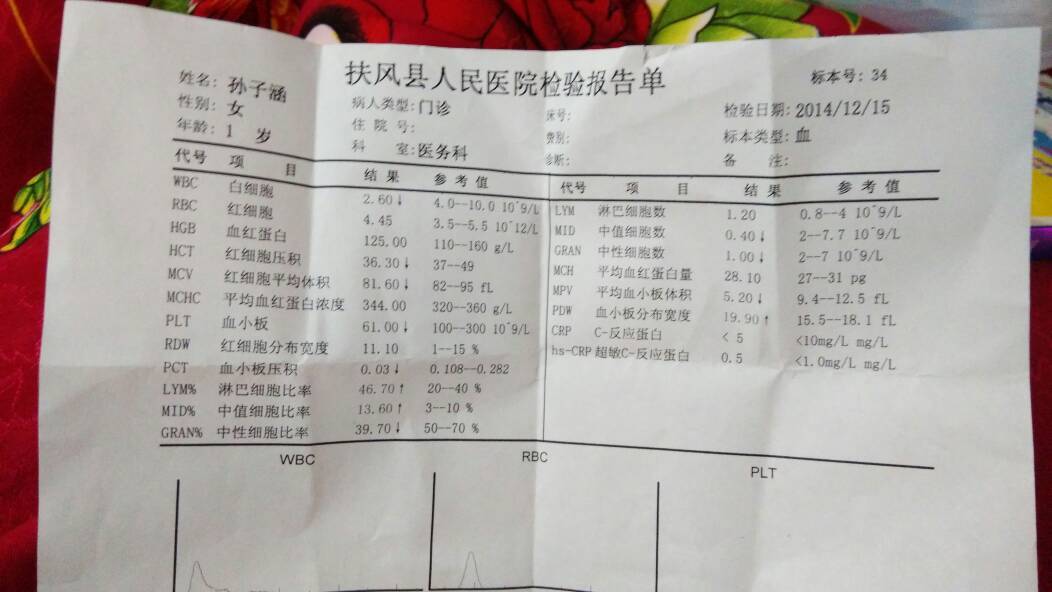 扶风县人民医院检验报告单
标本号: 34
姓名: 孙子涵
病人类型: 门诊
床号:
检验日期: 2014/12/15
性别: 女
住 院 号:
费别:
标本类型: 血
年龄: 1 岁
科 室: 医务科
诊断:
备 注:
代号 项 目 结 果 参 考 值
WBC 白细胞 2.60↓ 4.0--10.0 10^9/L
RBC 红细胞 4.45 3.5--5.5 10^12/L
HGB 血红蛋白 125.00 110--160 g/L
HCT 红细胞压积 36.30↓ 37--49
MCV 红细胞平均体积 81.60↓ 82--95 fL
MCHC 平均血红蛋白浓度 344.00 320--360 g/L
PLT 血小板 61.00↓ 100--300 10^9/L
RDW 红细胞分布宽度 11.10 1--15 %
PCT 血小板压积 0.03↓ 0.108--0.282
LYM% 淋巴细胞比率 46.70↑ 20--40 %
MID% 中值细胞比率 13.60↑ 3--10 %
GRAN% 中性细胞比率 39.70↓ 50--70 %
代号 项 目 结 果 参 考 值
LYM 淋巴细胞数 1.20 0.8--4 10^9/L
MID 中值细胞数 0.40↓ 2--7.7 10^9/L
GRAN 中性细胞数 1.00↓ 2--7 10^9/L
MCH 平均血红蛋白量 28.10 27--31 pg
MPV 平均血小板体积 5.20↓ 9.4--12.5 fL
PDW 血小板分布宽度 19.90↑ 15.5--18.1 fL
CRP C-反应蛋白 < 5 <10mg/L mg/L
hs-CRP 超敏C-反应蛋白 0.5 <1.0mg/L mg/L
WBC
RBC
PLT